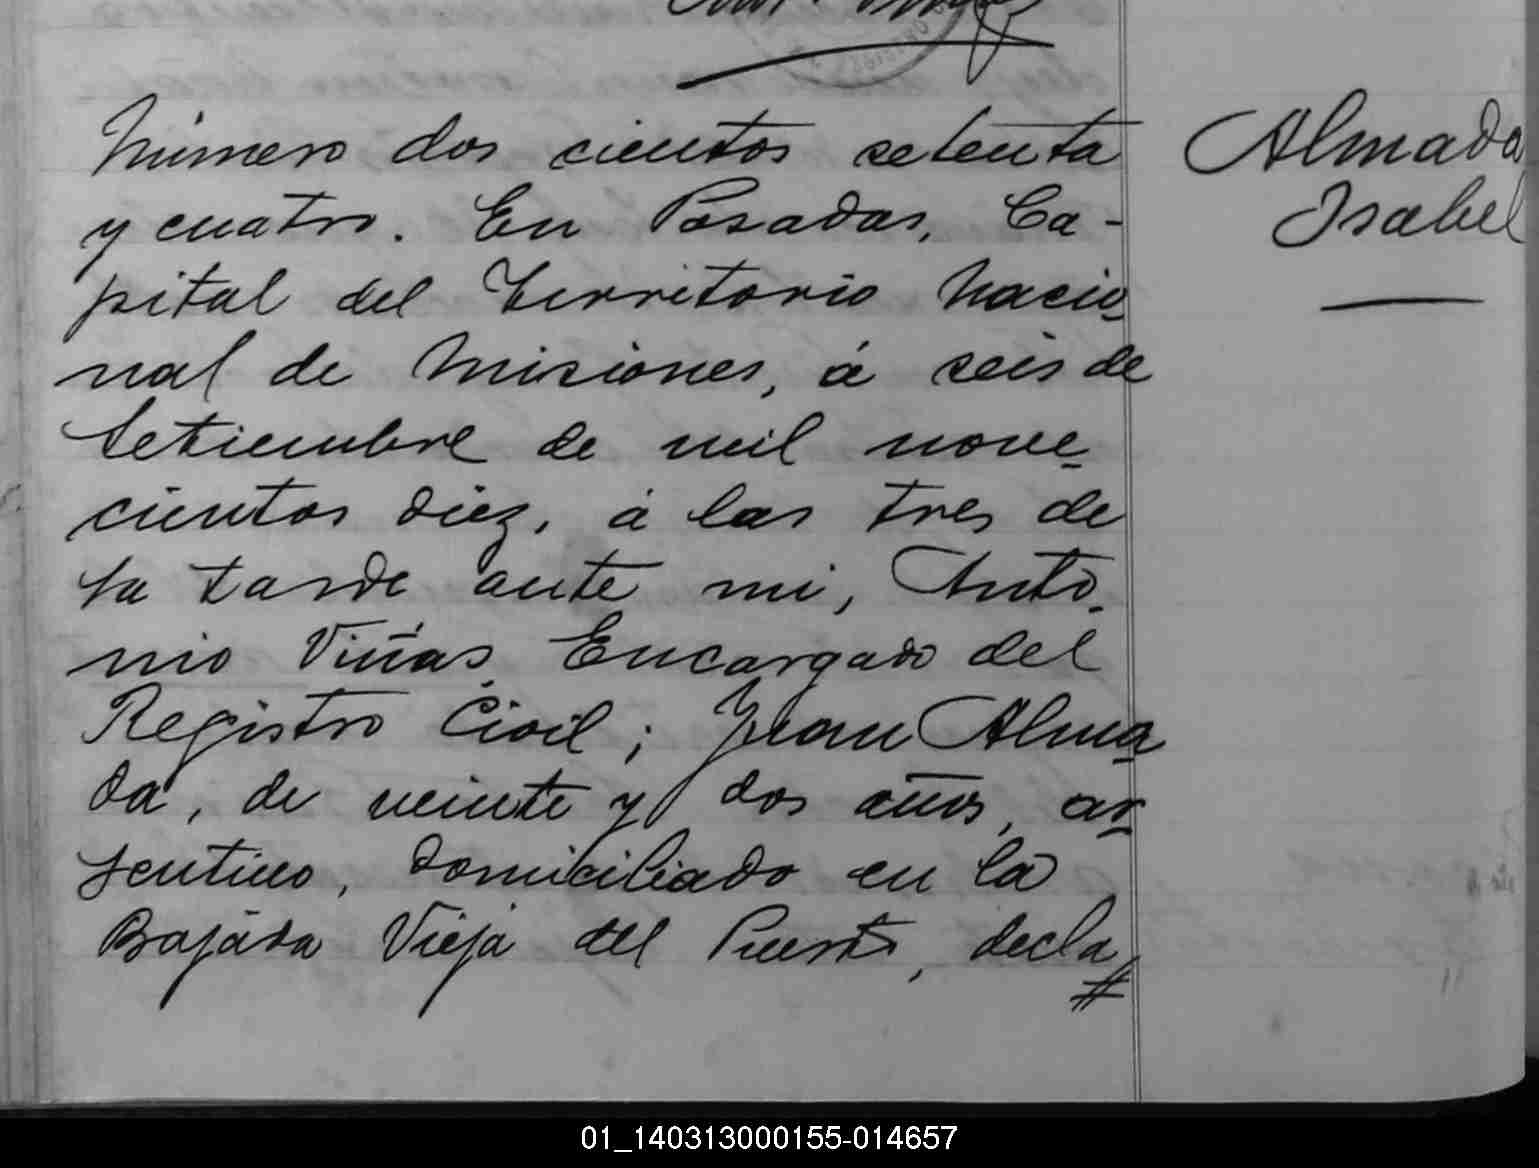 Número dos cientos setenta
y cuatro. En Posadas, Ca-
pital del Territorio Nacio-
nal de Misiones, á seis de
Setiembre de mil nove-
cientos diez, á las tres de
la tarde ante mi, Anto-
nio Viñas, Encargado del
Registro Civil; Juan Alma-
da, de veinte y dos años, ar-
gentino, domiciliado en la
Bajada Vieja del Puerto, decla
Almada
Isabel
01_140313000155-014657